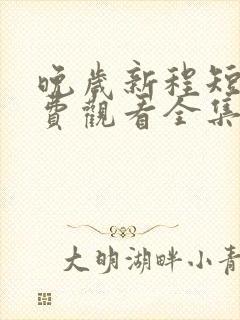 晚歲新程短
費觀看全集
大明湖畔小青